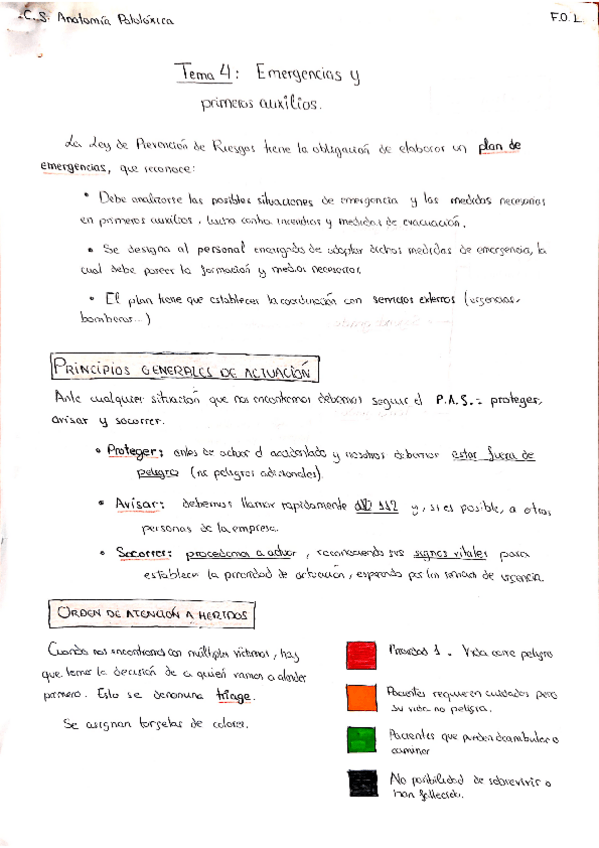 C.S. Anatomía Patolóxica
F.O.L.
Tema 4: Emergencias y
primeros auxilios.
La Ley de Prevención de Riesgos tiene la obligación de elaborar un plan de
emergencias, que reconoce:
• Debe analizarse las posibles situaciones de emergencia y las medidas necesarias
en primeros auxilios, lucha contra incendios y medidas de evacuación.
• Se designa al personal encargado de adoptar dichas medidas de emergencia, la
cual debe poseer la formación y medios necesarios.
• El plan tiene que establecer la coordinación con servicios externos (urgencias,
bomberos...)
PRINCIPIOS GENERALES DE ACTUACIÓN
Ante cualquier situación que nos encontremos debemos seguir el P.A.S.: proteger,
avisar y socorrer.
• Proteger: antes de actuar el accidentado y nosotros debemos estar fuera de
peligro (no peligros adicionales).
• Avisar: debemos llamar rapidamente al 112 y, si es posible, a otras
personas de la empresa.
• Socorrer: procedemos a actuar, reconociendo sus signos vitales para
establecer la prioridad de actuación, esperando por los servicios de urgencia.
ORDEN DE ATENCIÓN A HERIDOS
Cuando nos encontramos con múltiples víctimas, hay
que tomar la decisión de a quién vamos a atender
primero. Esto se denomina triage.
Se asignan tarjetas de colores.
Prioridad 1. Vida corre peligro
Pacientes requieren cuidados pero
su vida no peligra.
Pacientes que pueden deambular o
caminar
No posibilidad de sobrevivir o
han fallecido.